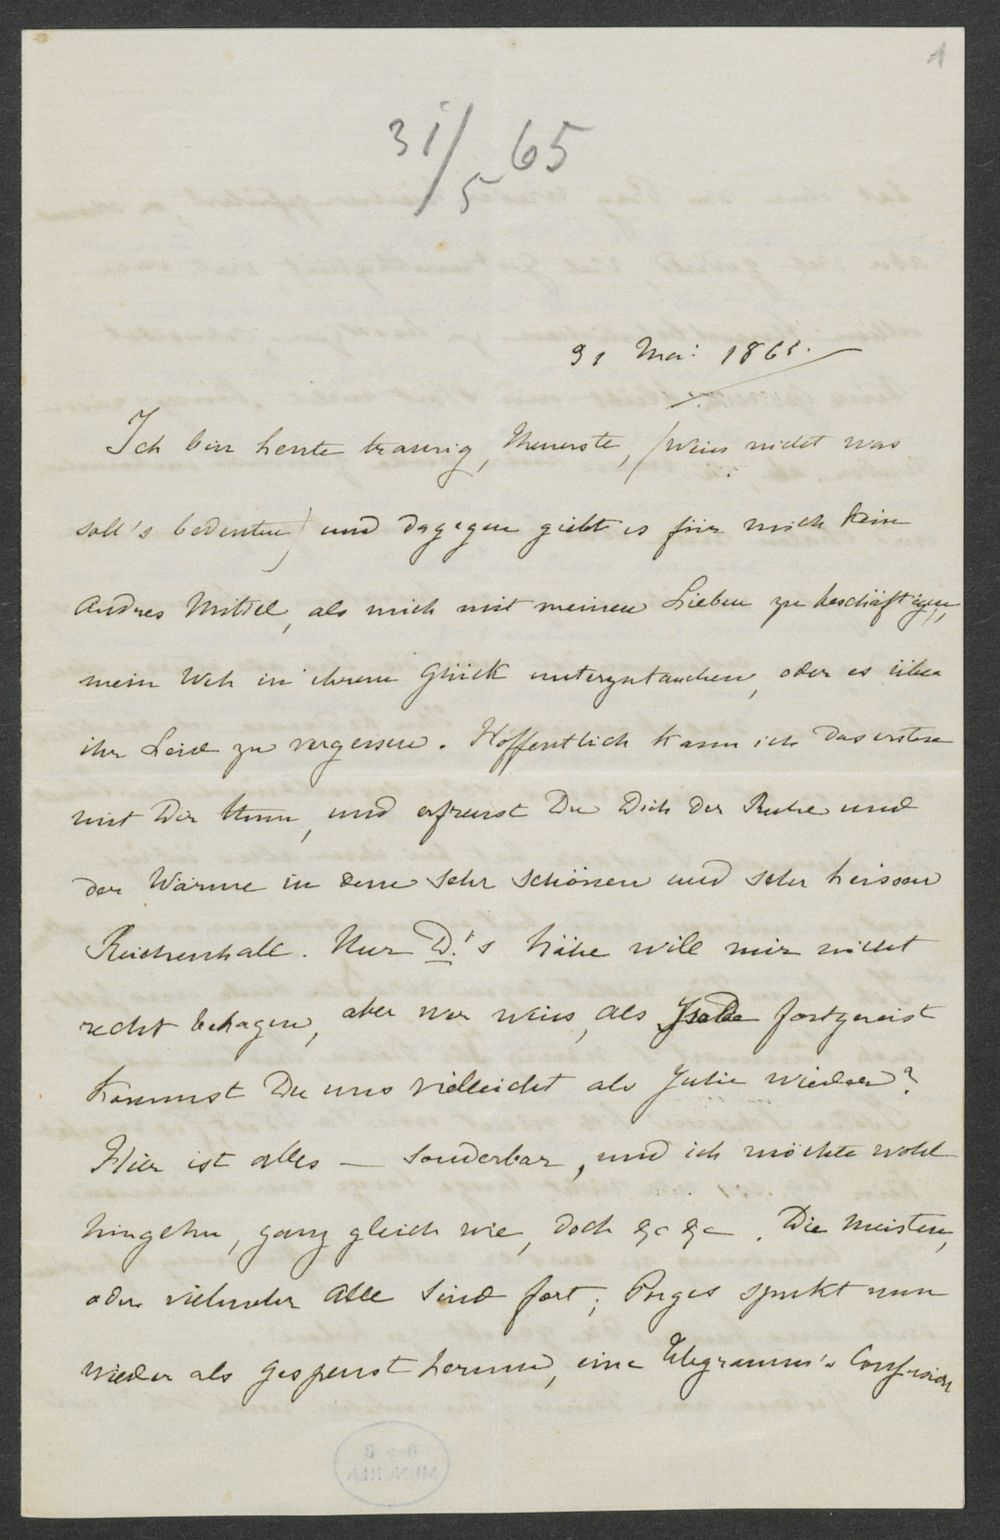 1
31/5 65
31 Mai 1865.
Ich bin heute traurig, Theuerste, (weiss nicht was
soll's bedeuten) und dagegen giebt es für mich kein
andres Mittel, als mich mit meinen Lieben zu beschäftigen,
mein Weh in ihrem Glück unterzutauchen, oder es über
ihr Leid zu vergessen. Hoffentlich kann ich das erstere
mit Dir thun, und erfreust Du Dich der Ruhe und
der Wärme in dem sehr schönen und sehr heissen
Reichenhall. Nur D.'s Nähe will mir nicht
recht behagen, aber wer weiss, als Isolde fortgereist
kommst Du uns vielleicht als Julie wieder?
Hier ist alles — sonderbar, und ich möchte wohl
hingehn, ganz gleich wie, doch &c &c. Die meisten,
oder vielmehr alle sind fort; Porges spukt nun
wieder als Gespenst herum, eine Telegramm's Confusion
B S B
MÜNCHEN